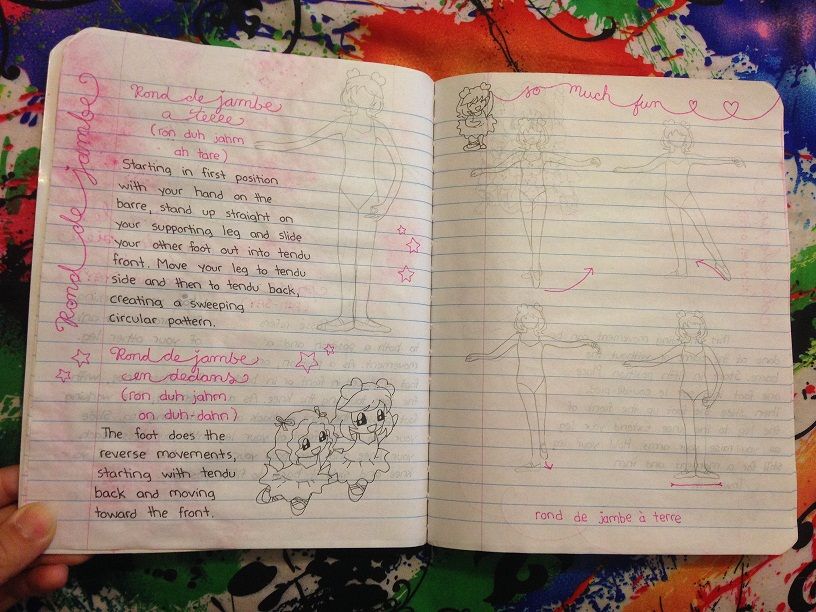 Rond de jambe
Rond de jambe
a terre
(ron duh jahm
ah tare)
Starting in first position
with your hand on the
barre, stand up straight on
your supporting leg and slide
your other foot out into tendu
front. Move your leg to tendu
side and then to tendu back,
creating a sweeping
circular pattern.
Rond de jambe
en dedans
(ron duh jahm
on duh-dahn)
The foot does the
reverse movements,
starting with tendu
back and moving
toward the front.
so much fun
rond de jambe à terre